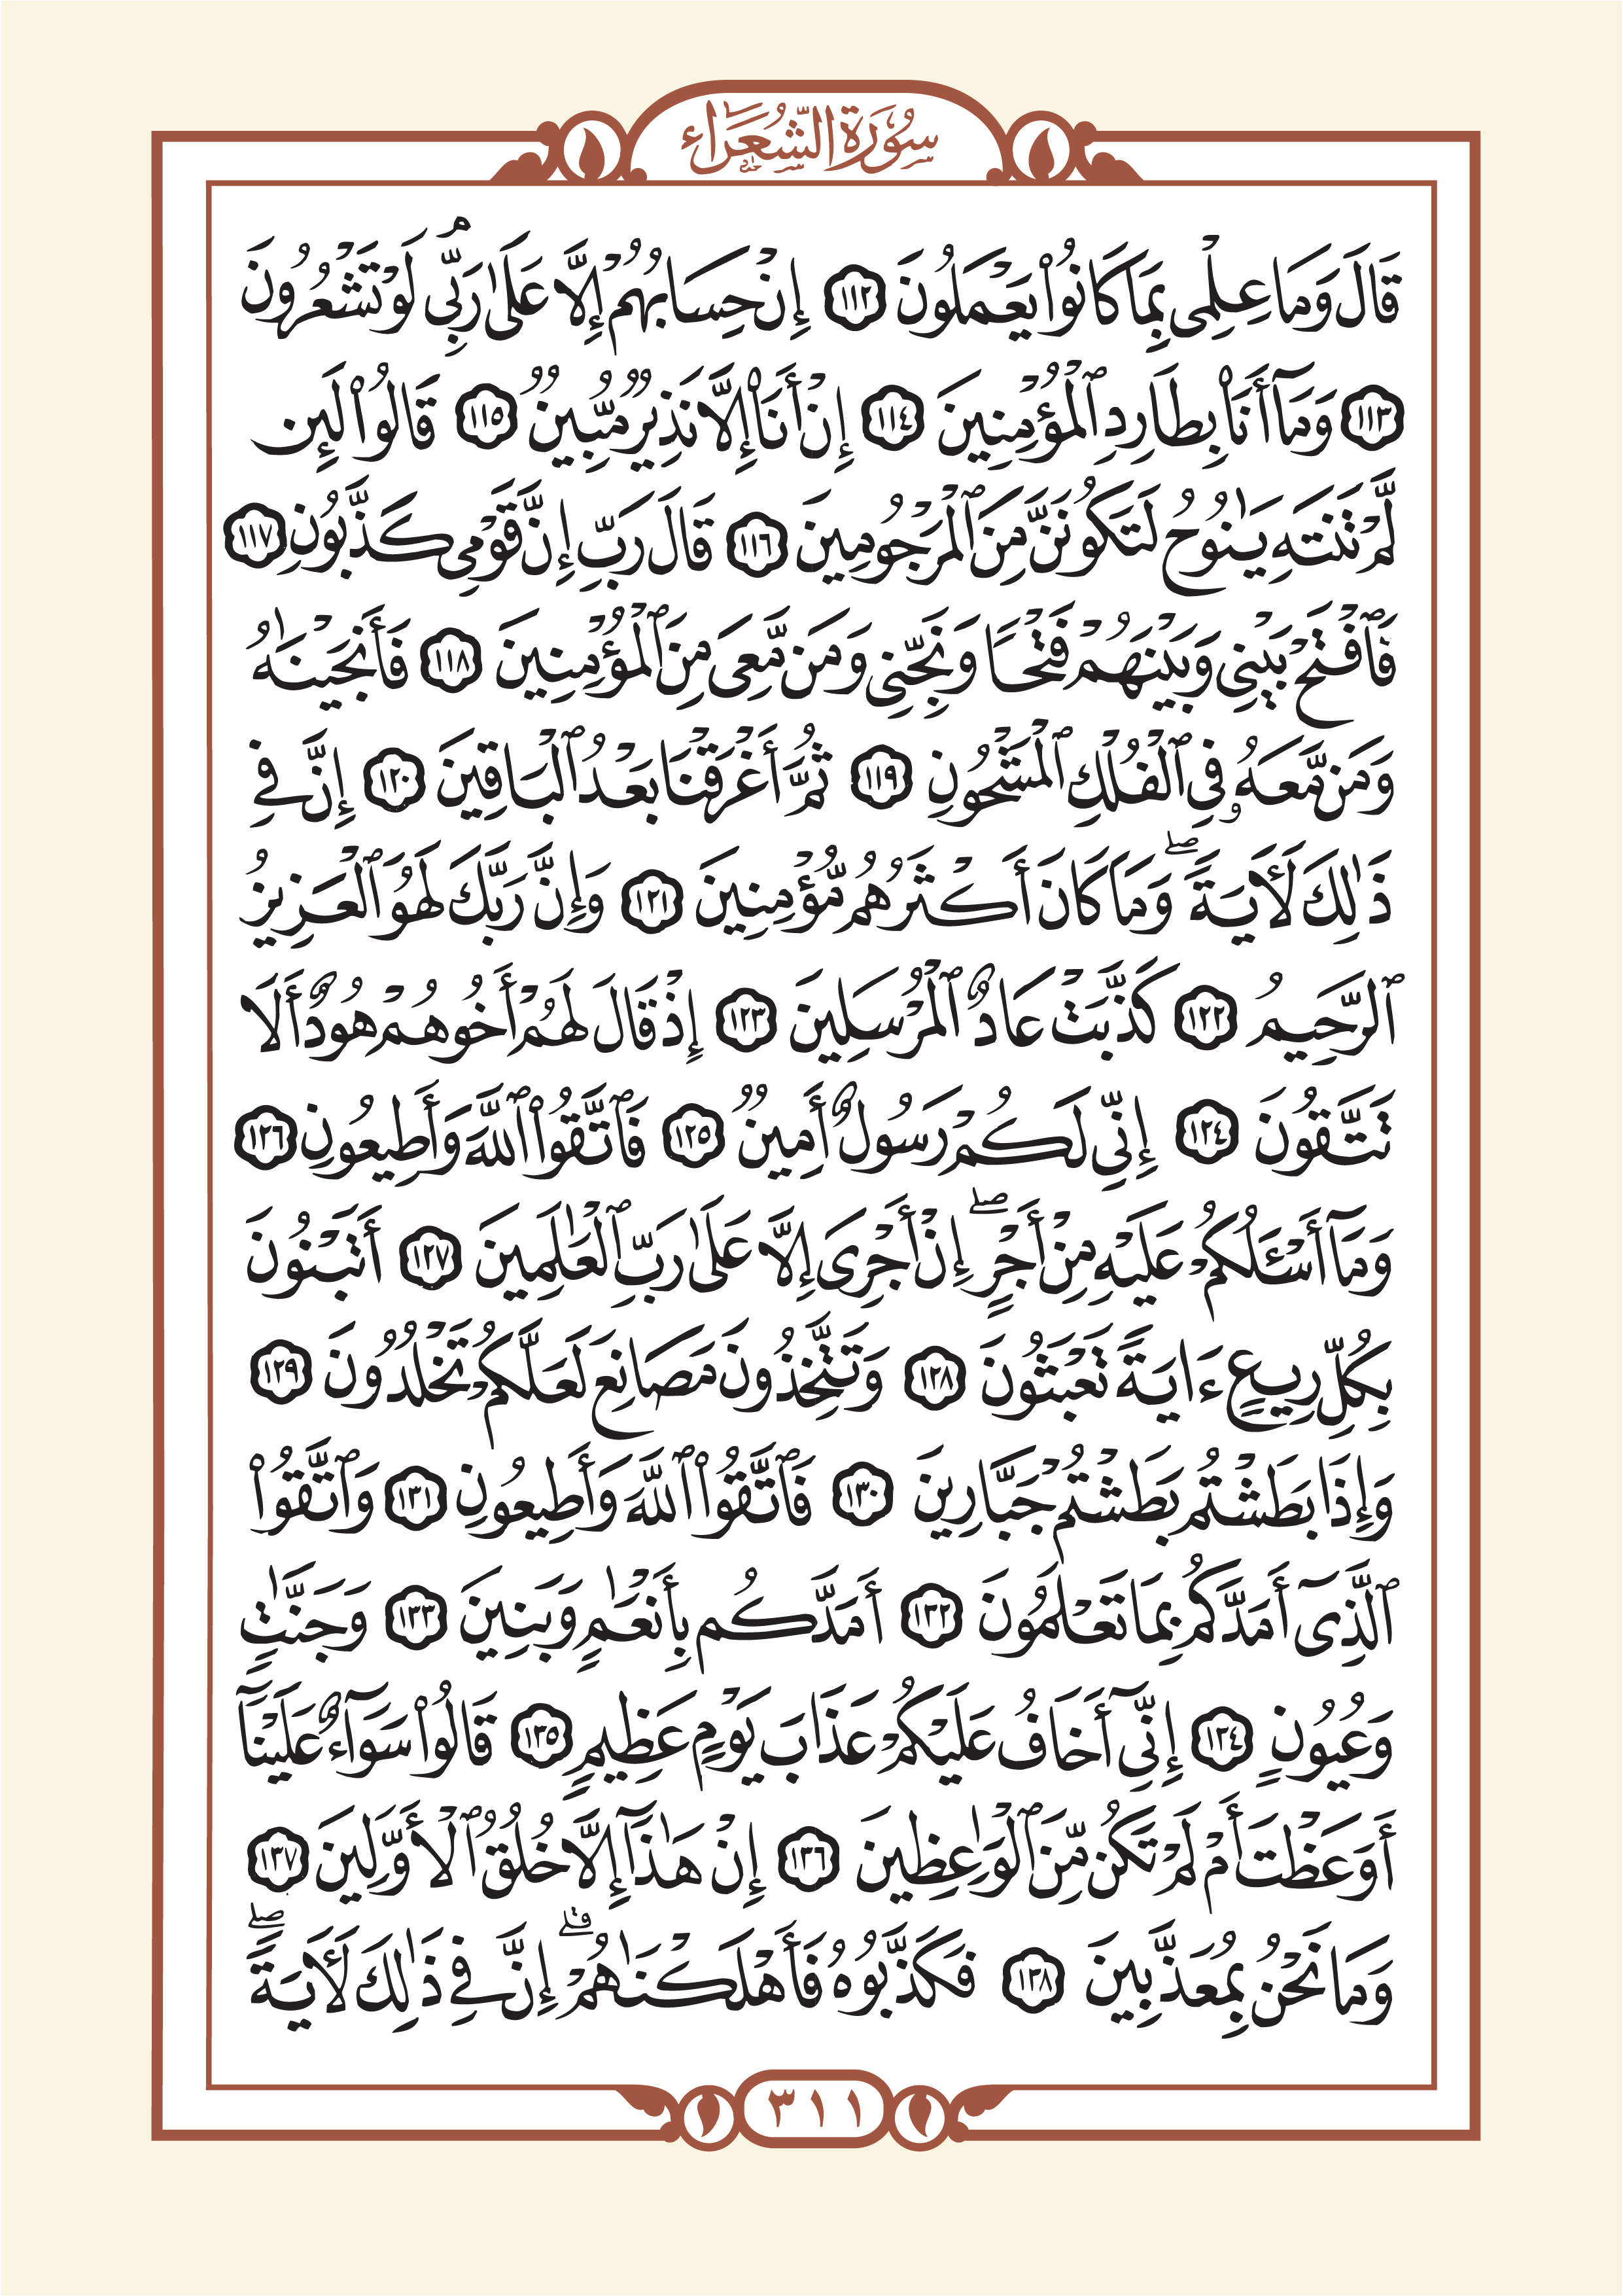 سُورَةُ الشُّعَرَاءِ
قَالَ وَمَا عِلْمِى بِمَا كَانُوا۟ يَعْمَلُونَ ١١٢ إِنْ حِسَابُهُمْ إِلَّا عَلَىٰ رَبِّى لَوْ تَشْعُرُونَ
١١٣ وَمَآ أَنَا۠ بِطَارِدِ ٱلْمُؤْمِنِينَ ١١٤ إِنْ أَنَا۠ إِلَّا نَذِيرٌ مُّبِينٌ ١١٥ قَالُوا۟ لَئِن
لَّمْ تَنتَهِ يَـٰنُوحُ لَتَكُونَنَّ مِنَ ٱلْمَرْجُومِينَ ١١٦ قَالَ رَبِّ إِنَّ قَوْمِى كَذَّبُونِ ١١٧
فَٱفْتَحْ بَيْنِى وَبَيْنَهُمْ فَتْحًا وَنَجِّنِى وَمَن مَّعِىَ مِنَ ٱلْمُؤْمِنِينَ ١١٨ فَأَنجَيْنَـٰهُ
وَمَن مَّعَهُۥ فِى ٱلْفُلْكِ ٱلْمَشْحُونِ ١١٩ ثُمَّ أَغْرَقْنَا بَعْدُ ٱلْبَاقِينَ ١٢٠ إِنَّ فِى
ذَٰلِكَ لَـَٔايَةً ۖ وَمَا كَانَ أَكْثَرُهُم مُّؤْمِنِينَ ١٢١ وَإِنَّ رَبَّكَ لَهُوَ ٱلْعَزِيزُ
ٱلرَّحِيمُ ١٢٢ كَذَّبَتْ عَادٌ ٱلْمُرْسَلِينَ ١٢٣ إِذْ قَالَ لَهُمْ أَخُوهُمْ هُودٌ أَلَا
تَتَّقُونَ ١٢٤ إِنِّى لَكُمْ رَسُولٌ أَمِينٌ ١٢٥ فَٱتَّقُوا۟ ٱللَّهَ وَأَطِيعُونِ ١٢٦
وَمَآ أَسْـَٔلُكُمْ عَلَيْهِ مِنْ أَجْرٍ ۖ إِنْ أَجْرِىَ إِلَّا عَلَىٰ رَبِّ ٱلْعَـٰلَمِينَ ١٢٧ أَتَبْنُونَ
بِكُلِّ رِيعٍ ءَايَةً تَعْبَثُونَ ١٢٨ وَتَتَّخِذُونَ مَصَانِعَ لَعَلَّكُمْ تَخْلُدُونَ ١٢٩
وَإِذَا بَطَشْتُم بَطَشْتُمْ جَبَّارِينَ ١٣٠ فَٱتَّقُوا۟ ٱللَّهَ وَأَطِيعُونِ ١٣١ وَٱتَّقُوا۟
ٱلَّذِىٓ أَمَدَّكُم بِمَا تَعْلَمُونَ ١٣٢ أَمَدَّكُم بِأَنْعَـٰمٍ وَبَنِينَ ١٣٣ وَجَنَّـٰتٍ
وَعُيُونٍ ١٣٤ إِنِّىٓ أَخَافُ عَلَيْكُمْ عَذَابَ يَوْمٍ عَظِيمٍ ١٣٥ قَالُوا۟ سَوَآءٌ عَلَيْنَآ
أَوَعَظْتَ أَمْ لَمْ تَكُن مِّنَ ٱلْوَٰعِظِينَ ١٣٦ إِنْ هَـٰذَآ إِلَّا خُلُقُ ٱلْأَوَّلِينَ ١٣٧
وَمَا نَحْنُ بِمُعَذَّبِينَ ١٣٨ فَكَذَّبُوهُ فَأَهْلَكْنَـٰهُمْ ۗ إِنَّ فِى ذَٰلِكَ لَـَٔايَةً ۖ
٣١١